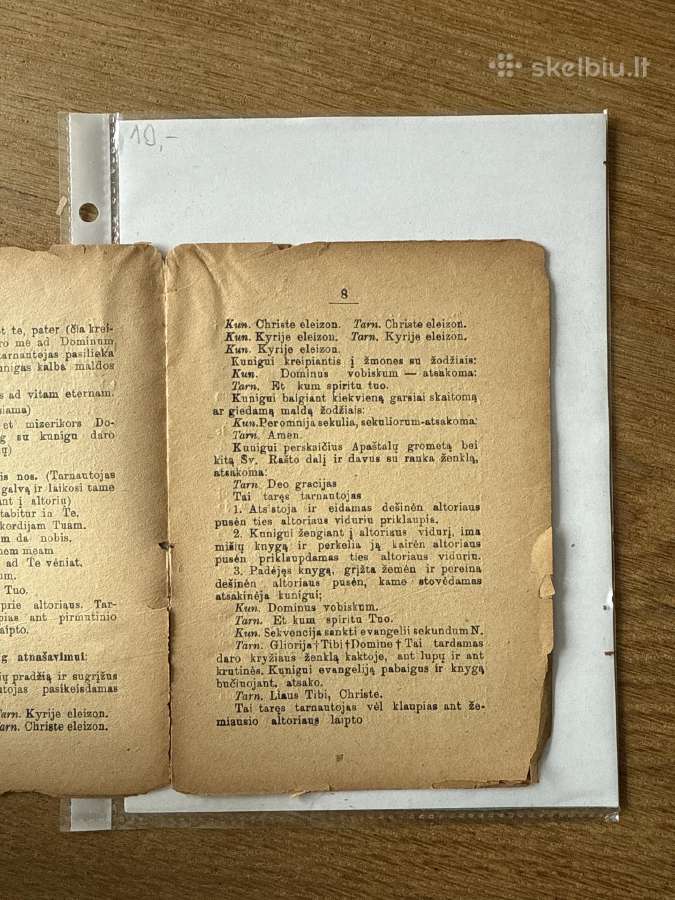 skelbiu.lt
10,-
t te, pater (čia krei-
ro mė ad Dominum
tarnautojas pasilieka
nigas kalba maldos
s ad vitam eternam.
siama)
et mizerikors Do-
g su kunigu daro
ų)
is nos. (Tarnautojas
galvą ir laikosi tame
ant į altorių)
tabitur in Te,
kordijam Tuam.
m da nobis.
nem meam
ad Te vėniat.
um.
Tuo.
prie altoriaus. Tar-
pias ant pirmutinio
aipto.
g atnašavimui:
ių pradžią ir sugrįžus
utojas pasikeisdamas
Tarn. Kyrije eleizon.
arn. Christe eleizon.
8
Kun. Christe eleizon. Tarn. Christe eleizon.
Kun. Kyrije eleizon. Tarn. Kyrije eleizon.
Kun. Kyrije eleizon.
Kunigui kreipiantis į žmones su žodžiais:
Kun. Dominus vobiskum — atsakoma:
Tarn. Et kum spiritu tuo.
Kunigui baigiant kiekvieną garsiai skaitomą
ar giedamą maldą žodžiais:
Kun. Peromnija sekulia, sekuliorum-atsakoma:
Tarn. Amen.
Kunigui perskaičius Apaštalų grometą bei
kitą Šv. Rašto dalį ir davus su ranka ženklą,
atsakoma:
Tarn. Deo gracijas
Tai taręs tarnautojas
1. Atsistoja ir eidamas dešinėn altoriaus
pusėn ties altoriaus viduriu priklaupia.
2. Kunigui žengiant į altoriaus vidurį, ima
mišių knygą ir perkelia ją kairėn altoriaus
pusėn priklaupdamas ties altoriaus viduriu.
3. Padėjęs knygą, grįžta žemėn ir pereina
dešinėn altoriaus pusėn, kame stovėdamas
atsakinėja kunigui;
Kun. Dominus vobiskum.
Tarn. Et kum spiritu Tuo.
Kun. Sekvencija sankti evangelii sekundum N.
Tarn. Gliorija†Tibi†Domine† Tai tardamas
daro kryžiaus ženklą kaktoje, ant lupų ir ant
krutinės. Kunigui evangeliją pabaigus ir knygą
bučiuojant, atsako.
Tarn. Liaus Tibi, Christe.
Tai taręs tarnautojas vėl klaupias ant že-
miausio altoriaus laipto